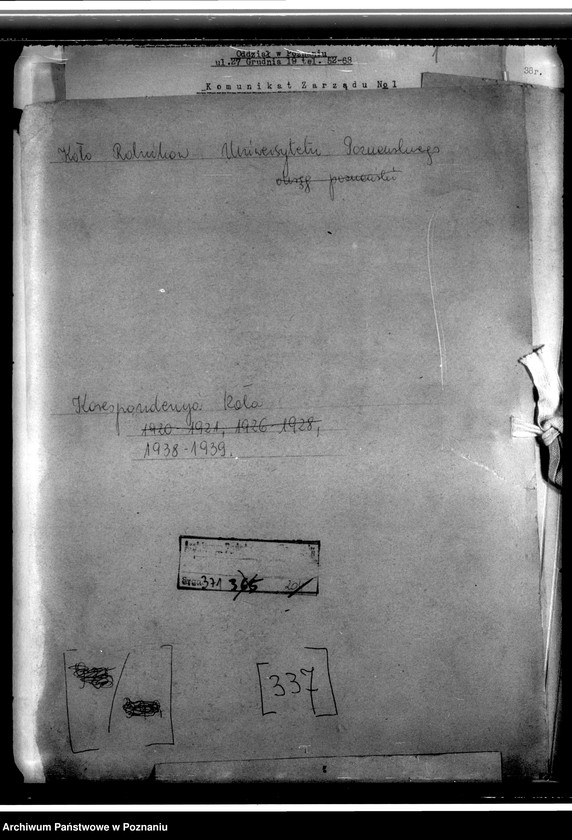 Oddział w Poznaniu
ul.27 Grudnia 19 tel. 52-68
Komunikat Zarządu No 1
38r.
Koło Rolników Uniwersytetu Poznańskiego
okręg poznański
Korespondencja Koła
1920-1921, 1926-1928,
1938-1939.
371 366
[337]
Archiwum Państwowe w Poznaniu